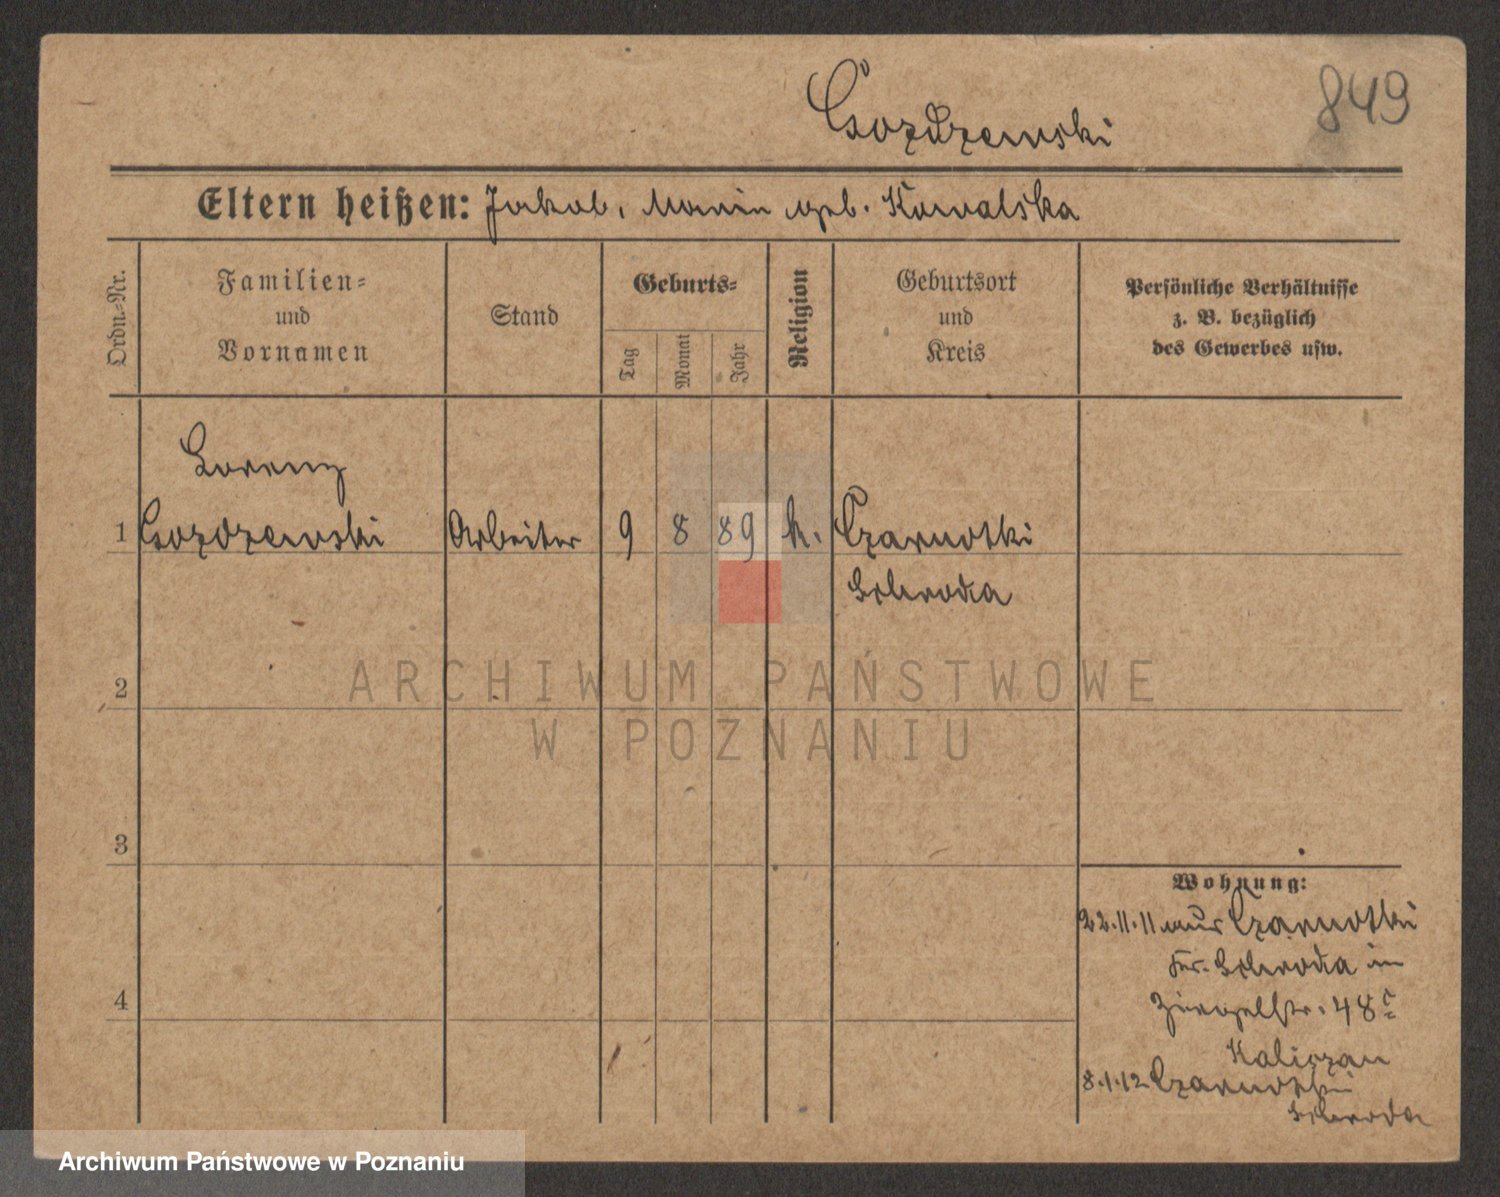 Gozdzewski
849
Eltern heißen: Jakob, Marie geb. Kowalska
Ordn.-Nr.
Familien-
und
Vornamen
Stand
Geburts-
Tag
Monat
Jahr
Religion
Geburtsort
und
Kreis
Persönliche Verhältnisse
z. B. bezüglich
des Gewerbes usw.
Lorenz
1 Gozdzewski Arbeiter 9 8 89 k. Czarnotki
Schroda
2
3
4
Wohnung:
22.11.11 aus Czarnotki
Kr. Schroda in
Ziegelstr. 48
Kaliszan
8.1.12 Czarnotki
Schroda
ARCHIWUM PAŃSTWOWE
W POZNANIU
Archiwum Państwowe w Poznaniu